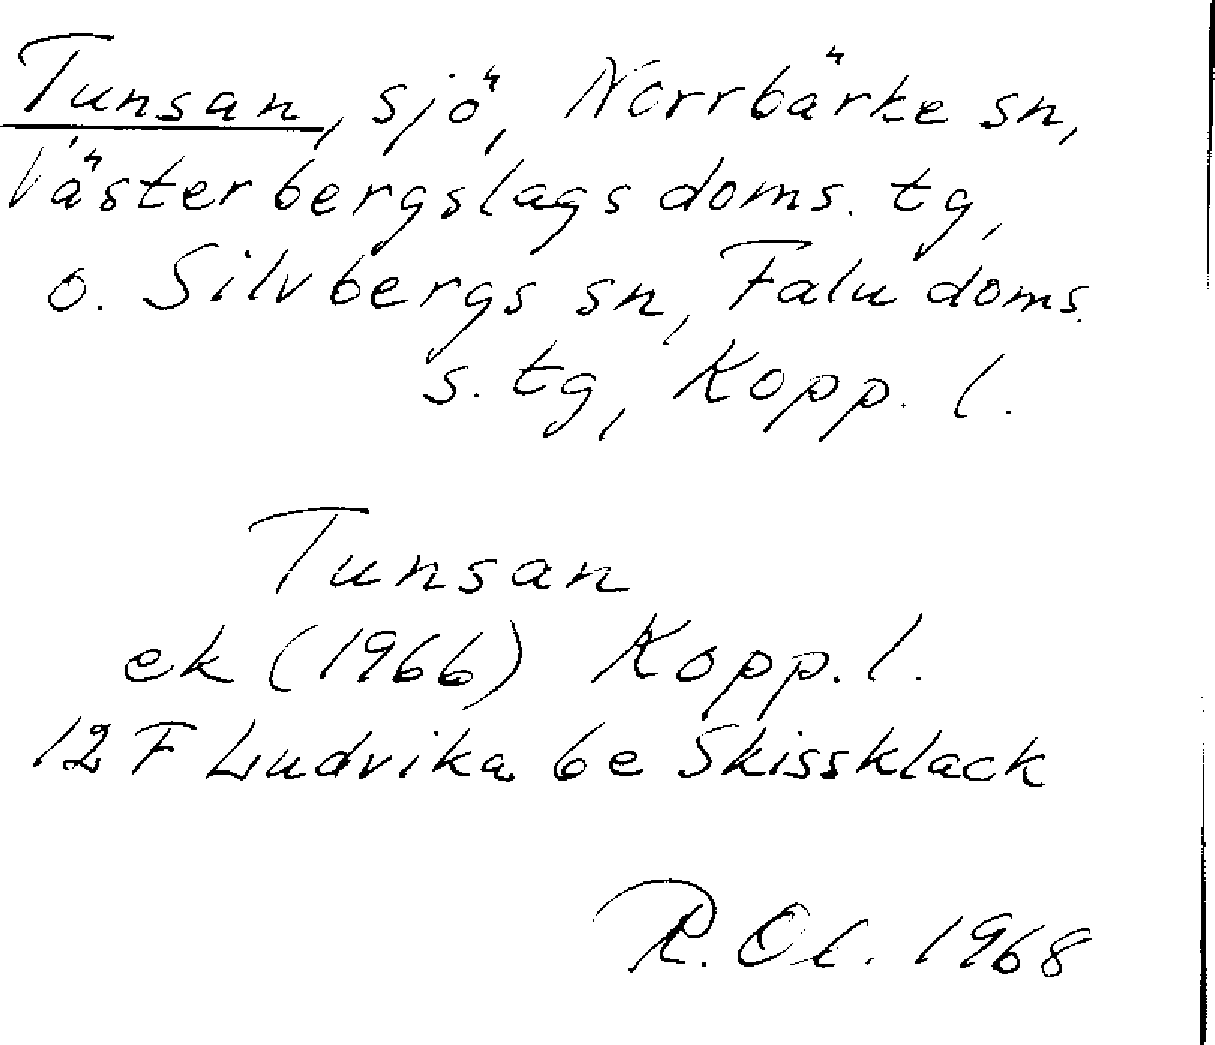 Tunsan, sjö, Norrbärke sn,
Västerbergslags doms. tg,
o. Silvbergs sn, Falu doms.
s. tg, Kopp. l.
Tunsan
ek (1966) Kopp. l.
12 F Ludvika 6e Skissklack
R. Ol. 1968